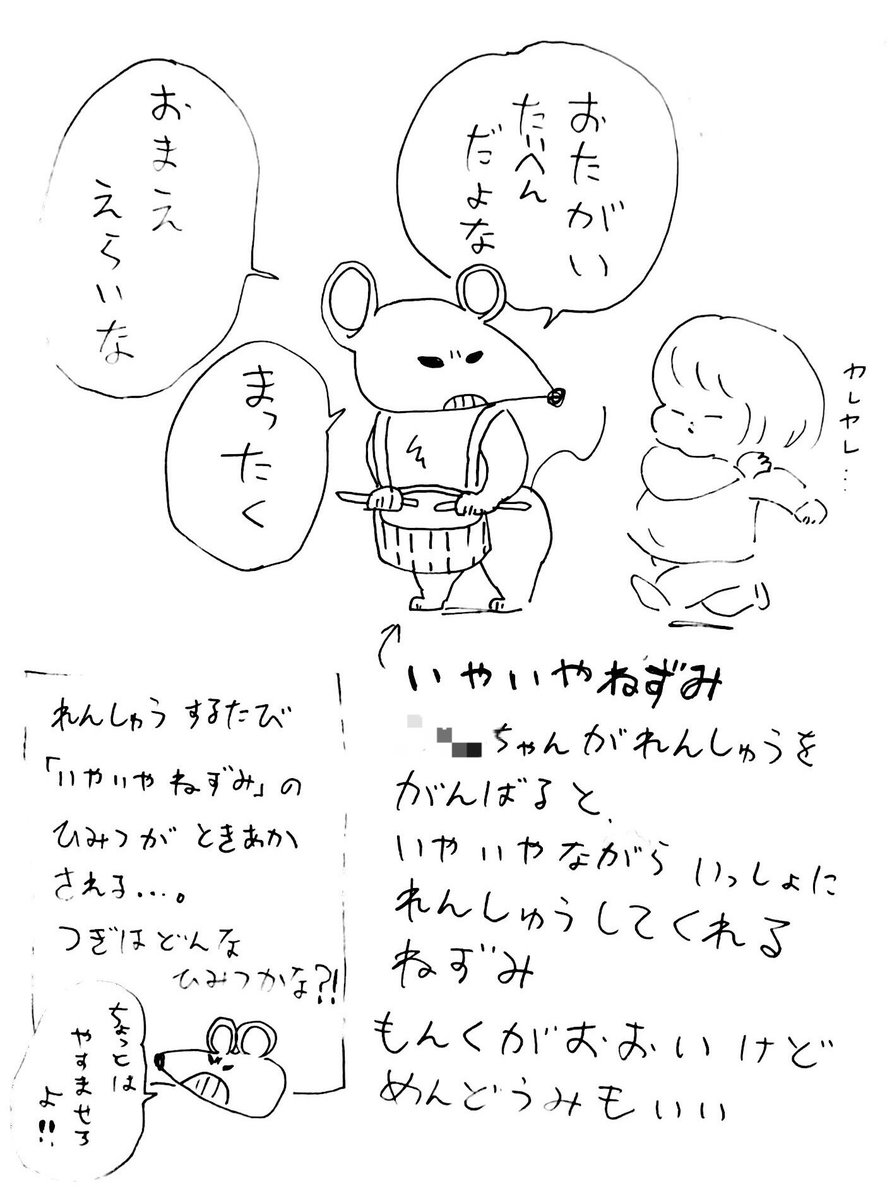 おたがい
たいへん
だよな
おまえ
えらいな
まったく
ヤレヤレ…
いやいやねずみ
ちゃんがれんしゅうを
がんばると、
いやいやながら いっしょに
れんしゅうしてくれる
ねずみ
もんくがおおいけど
めんどうみもいい
れんしゅうするたび
「いやいやねずみ」の
ひみつがときあか
される…。
つぎはどんな
ひみつかな?!
ちょっとは
やすませろ
よ!!